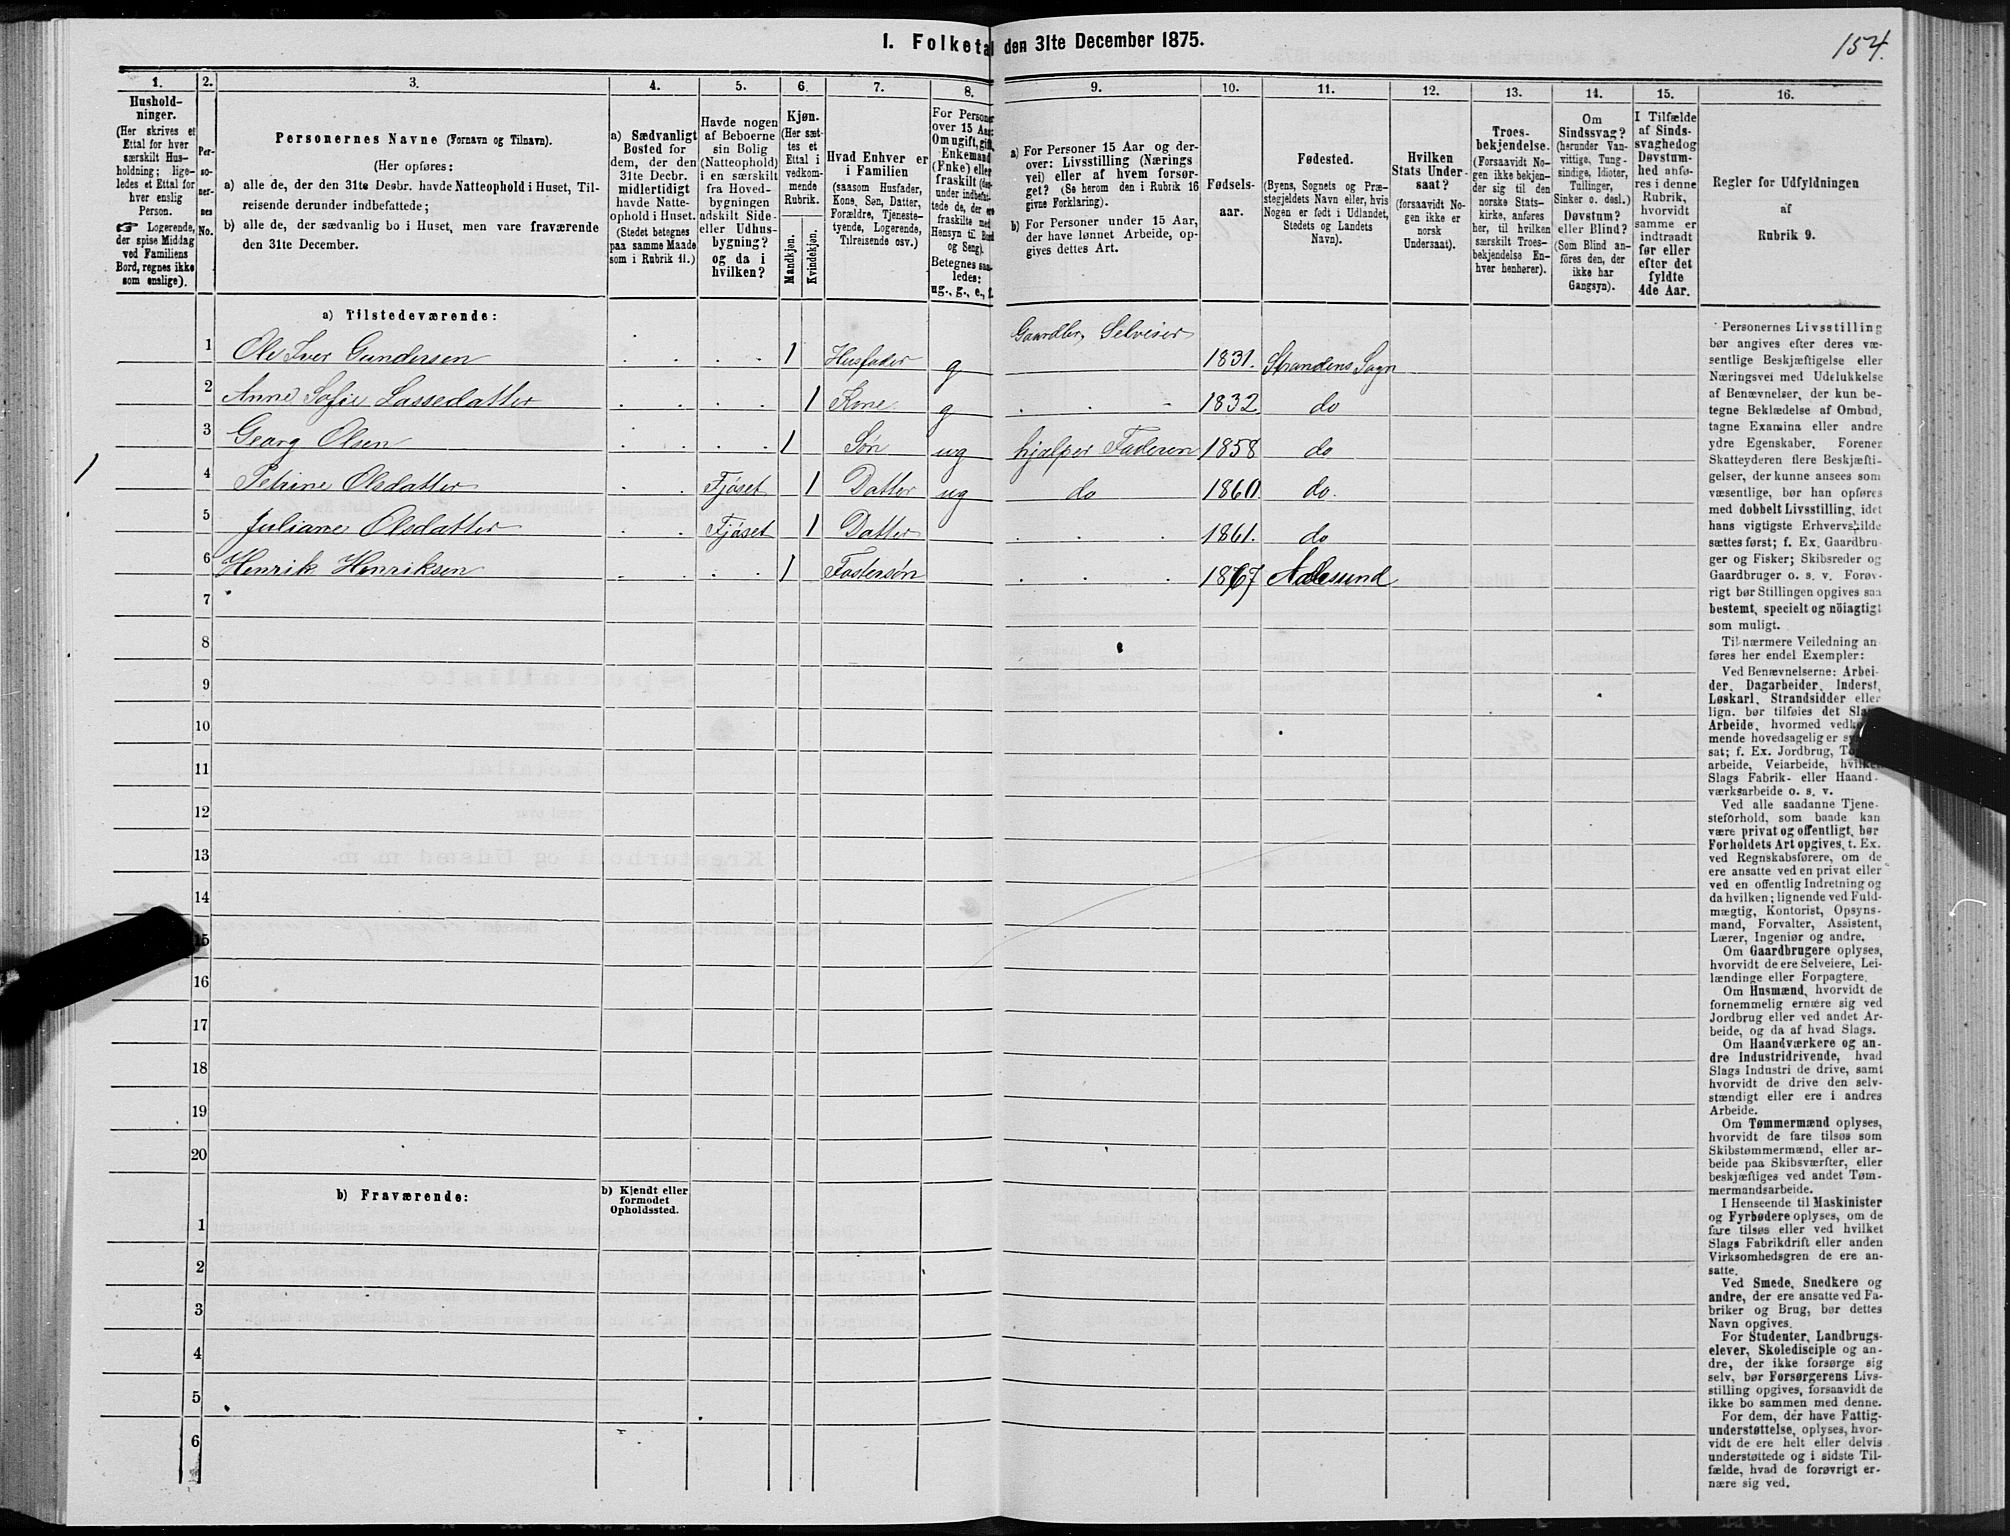 I. Folketal den 31te December 1875.
154.
1. 2. 3. 4. 5. 6. 7. 8. 9. 10. 11. 12. 13. 14. 15. 16.
Hushold-
ninger.
(Her skrives et
Ettal for hver
særskilt Hus-
holdning; lige-
ledes et Ettal for
hver enslig
Person.
☞ Logerende,
der spise Middag
ved Familiens
Bord, regnes ikke
som enslige).
Per-
so-
ner-
nes
No.
Personernes Navne (Fornavn og Tilnavn).
(Her opføres:
a) alle de, der den 31te Decbr. havde Natteophold i Huset, Til-
reisende derunder indbefattede;
b) alle de, der sædvanlig bo i Huset, men vare fraværende
den 31te December.
a) Sædvanligt
Bosted for
dem, der den
31te Decbr.
midlertidigt
havde Natte-
ophold i Huset.
(Stedet betegnes
paa samme Maade
som i Rubrik 11.)
Havde nogen
af Beboerne
sin Bolig
(Natteophold)
i en særskilt
fra Hoved-
bygningen
adskilt Side-
eller Udhus-
bygning?
og da i
hvilken?
Kjøn.
(Her sæt-
tes et
Ettal i
vedkom-
mende
Rubrik.
Mandkjøn.
Kvindekjøn.
Hvad Enhver er
i Familien
(saasom Husfader,
Kone, Søn, Datter,
Forældre, Tjeneste-
tyende, Logerende,
Tilreisende osv.)
For Personer
over 15 Aar:
Om ugift, gift,
Enkemand
(Enke) eller
fraskilt (der-
under indbefat-
tede de, der ere
fraskilte med
Hensyn til Bord
og Seng).
Betegnes saa-
ledes:
ug., g., e., f.
a) For Personer 15 Aar og der-
over: Livsstilling (Nærings-
vei) eller af hvem forsør-
get? (Se herom den i Rubrik 16
givne Forklaring).
b) For Personer under 15 Aar,
der have lønnet Arbeide, op-
gives dettes Art.
Fødsels-
aar.
Fødested.
(Byens, Sognets og Præ-
stegjeldets Navn eller, hvis
Nogen er født i Udlandet,
Stedets og Landets
Navn).
Hvilken
Stats Under-
saat?
(forsaavidt No-
gen ikke er
norsk
Undersaat).
Troes-
bekjendelse.
(Forsaavidt No-
gen ikke bekjen-
der sig til den
norske Stats-
kirke, anføres
her, til hvilken
særskilt Troes-
bekjendelse En-
hver henhører).
Om
Sindssvag?
(herunder Van-
vittige, Tung-
sindige, Idioter,
Tullinger,
Sinker o. desl.)
Døvstum?
eller Blind?
(Som Blind an-
føres den, der
ikke har
Gangsyn).
I Tilfælde
af Sinds-
svaghed og
Døvstum-
hed anfø-
res i denne
Rubrik,
hvorvidt
samme er
indtraadt
før eller
efter det
fyldte
4de Aar.
Regler for Udfyldningen
af
Rubrik 9.
a) Tilstedeværende:
1 Ole Iver Gundersen . . . . 1 Husfader g Gaardbr, Selveier 1831. Strandens Sogn
2 Anne Sofie Lassedatter . . . . 1 Kone g . . - 1832 do
3 Georg Olsen . . . . 1 Søn ug hjælper Faderen 1858 do
1
4 Petrine Olsdatter . . Fjøset 1 Datter ug do 1860 do.
5 Juliane Olsdatter . . Fjøset 1 Datter . . . 1861. do
6 Henrik Henriksen . . . . 1 Fostersøn . . . 1867 Aalesund
7
8
9
10
11
12
13
14
15
16
17
18
19
20
b) Fraværende:
b) Kjendt eller
formodet
Opholdssted.
1
2
3
4
5
6
Personernes Livsstilling
bør angives efter deres væ-
sentlige Beskjæftigelse eller
Næringsvei med Udelukkelse
af Benævnelser, der kun be-
tegne Beklædelse af Ombud,
tagne Examina eller andre
ydre Egenskaber. Forener
Skatteyderen flere Beskjæfti-
gelser, der kunne ansees som
væsentlige, bør han opføres
med dobbelt Livsstilling, idet
hans vigtigste Erhvervskilde
sættes først; f. Ex. Gaardbru-
ger og Fisker; Skibsreder og
Gaardbruger o. s. v. Forøv-
rigt bør Stillingen opgives saa
bestemt, specielt og nöiagtigt
som muligt.
Til nærmere Veiledning an
føres her endel Exempler:
Ved Benævnelserne: Arbei-
der, Dagarbeider, Inderst,
Løskarl, Strandsidder eller
lign. bør tilføies det Slags
Arbeide, hvormed vedkom-
mende hovedsagelig er syssel-
sat; f. Ex. Jordbrug, Tomte-
arbeide, Veiarbeide, hvilken
Slags Fabrik- eller Haand-
værksarbeide o. s. v.
Ved alle saadanne Tjene-
steforhold, som baade kan
være privat og offentligt, bør
Forholdets Art opgives, t. Ex.
ved Regnskabsførere, om de
ere ansatte ved en privat eller
ved en offentlig Indretning og
da hvilken; lignende ved Fuld-
mægtig, Kontorist, Opsyns-
mand, Forvalter, Assistent,
Lærer, Ingeniør og andre.
Om Gaardbrugere oplyses,
hvorvidt de ere Selveiere, Lei-
lændinge eller Forpagtere.
Om Husmænd, hvorvidt de
fornemmelig ernære sig ved
Jordbrug eller ved andet Ar-
beide, og da af hvad Slags.
Om Haandværkere og an-
dre Industridrivende, hvad
Slags Industri de drive, samt
hvorvidt de drive den selv-
stændigt eller ere i andres
Arbeide.
Om Tømmermænd oplyses,
hvorvidt de fare tilsøs som
Skibstømmermænd, eller ar-
beide paa Skibsværfter, eller
beskjæftiges ved andet Tøm-
mermandsarbeide.
I Henseende til Maskinister
og Fyrbødere oplyses, om de
fare tilsøs eller ved hvilket
Slags Fabrikdrift eller anden
Virksomhedsgren de ere an-
satte.
Ved Smede, Snedkere og
andre, der ere ansatte ved Fa-
briker og Brug, bør dettes
Navn opgives.
For Studenter, Landbrugs-
elever, Skoledisciple og an-
dre, der ikke forsørge sig
selv, bør Forsørgerens Livs-
stilling opgives, forsaavidt de
ikke bo sammen med denne.
For dem, der have Fattig-
understøttelse, oplyses, hvor-
vidt de ere helt eller delvis
understøttede og i sidste Til-
fælde, hvad de forøvrigt er-
nære sig ved.